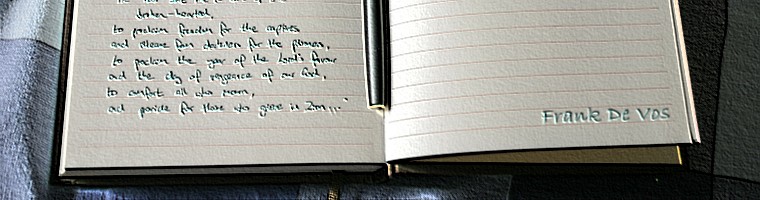 broken-hearted,
to proclaim freedom for the captives
and release from darkness for the prisoners,
to proclaim the year of the Lord's favour
and the day of vengeance of our God,
to comfort all who mourn,
and provide for those who grieve in Zion..."
Frank De Vos